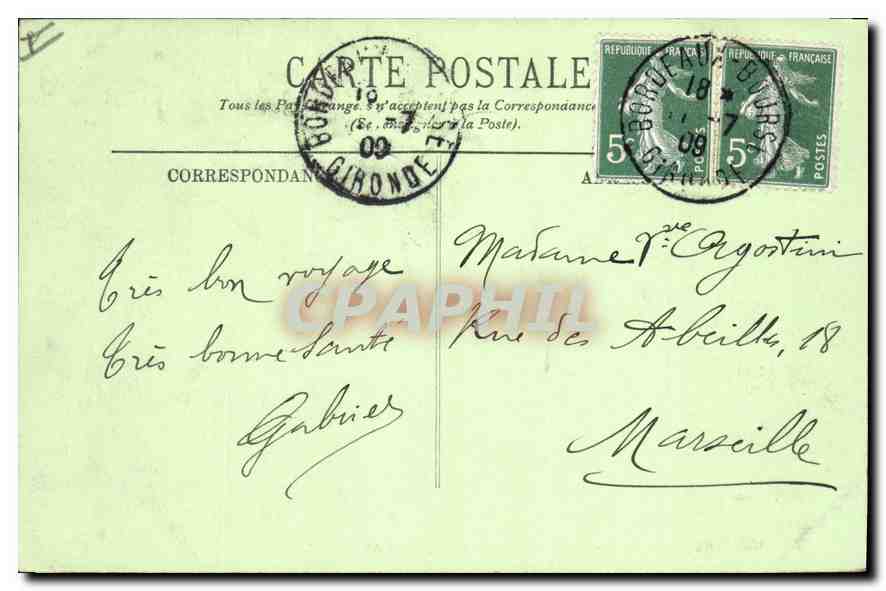 CARTE POSTALE
Tous les Pays n'acceptent pas la Correspondance
(Se à la Poste).
CORRESPONDAN
REPUBLIQUE FRANÇAISE
5c
POSTES
REPUBLIQUE FRANÇAISE
5c
POSTES
BORDEAUX-BOURSE
18 *
-7
09
GIRONDE
18
-7
09
GIRONDE
Très bon voyage
Très bonne Santé
Gabriel
Madame Vve Agostini
Rue des Abeilles, 18
Marseille
CPAPHIL